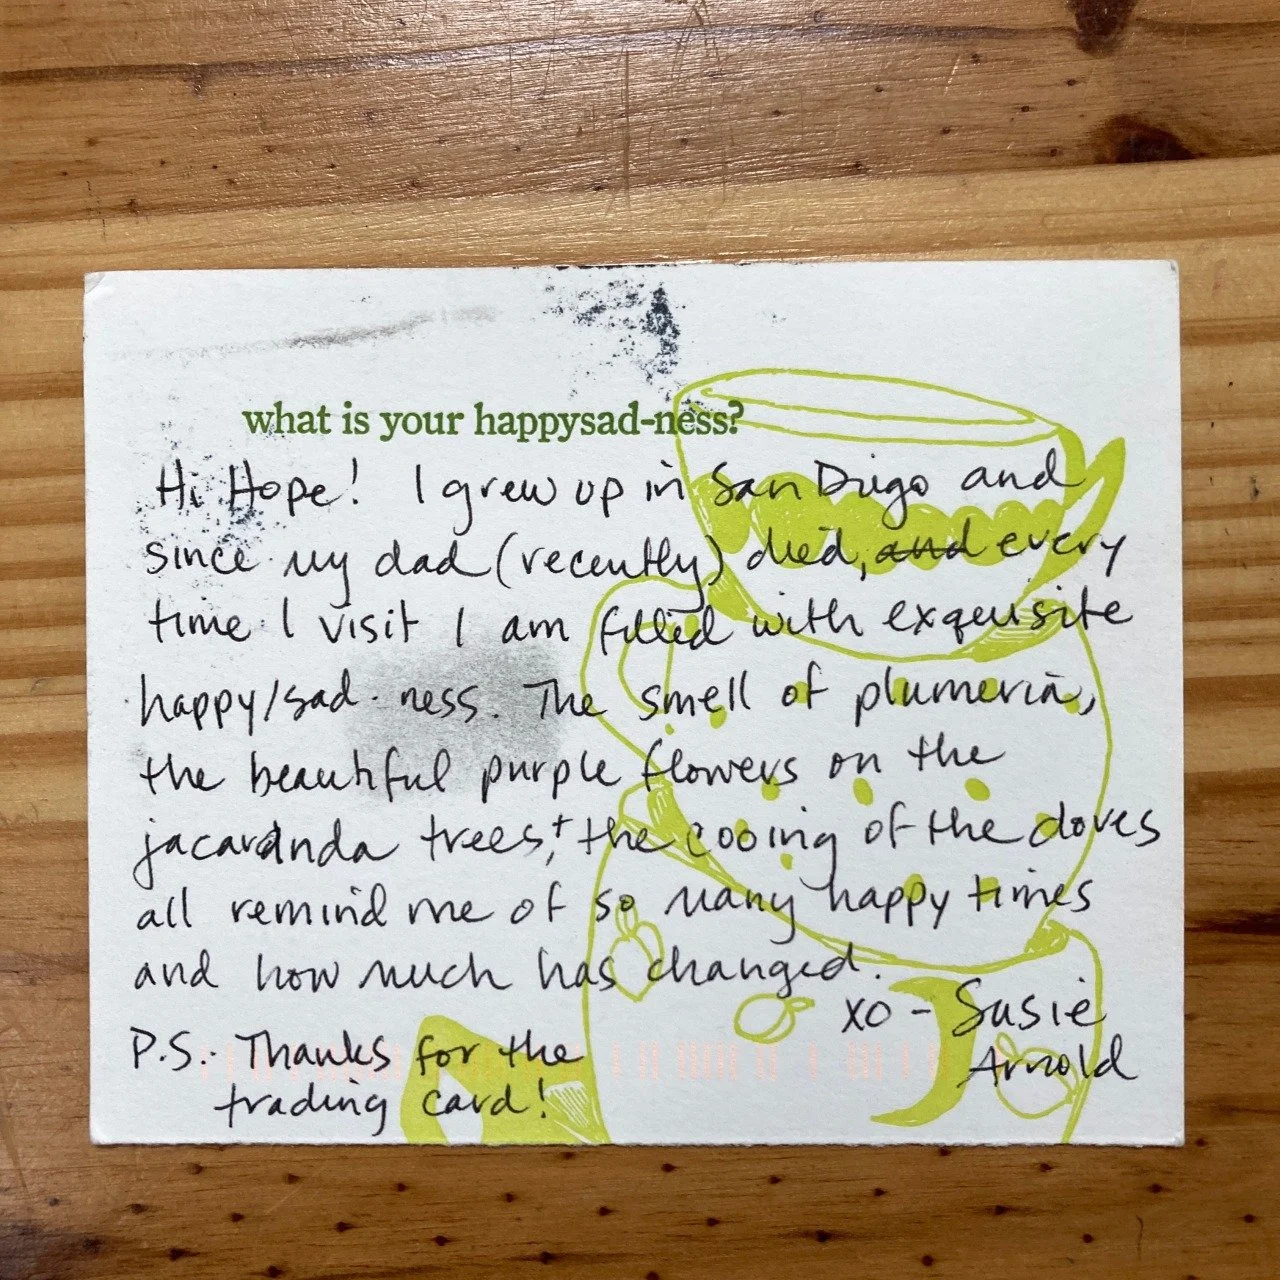 what is your happysad-ness?
Hi Hope! I grew up in San Diego and
since my dad (recently) died, and every
time I visit I am filled with exquisite
happy/sad-ness. The smell of plumeria,
the beautiful purple flowers on the
jacaranda trees, + the cooing of the doves
all remind me of so many happy times
and how much has changed.
xo - Susie
Arnold
P.S. Thanks for the
trading card!